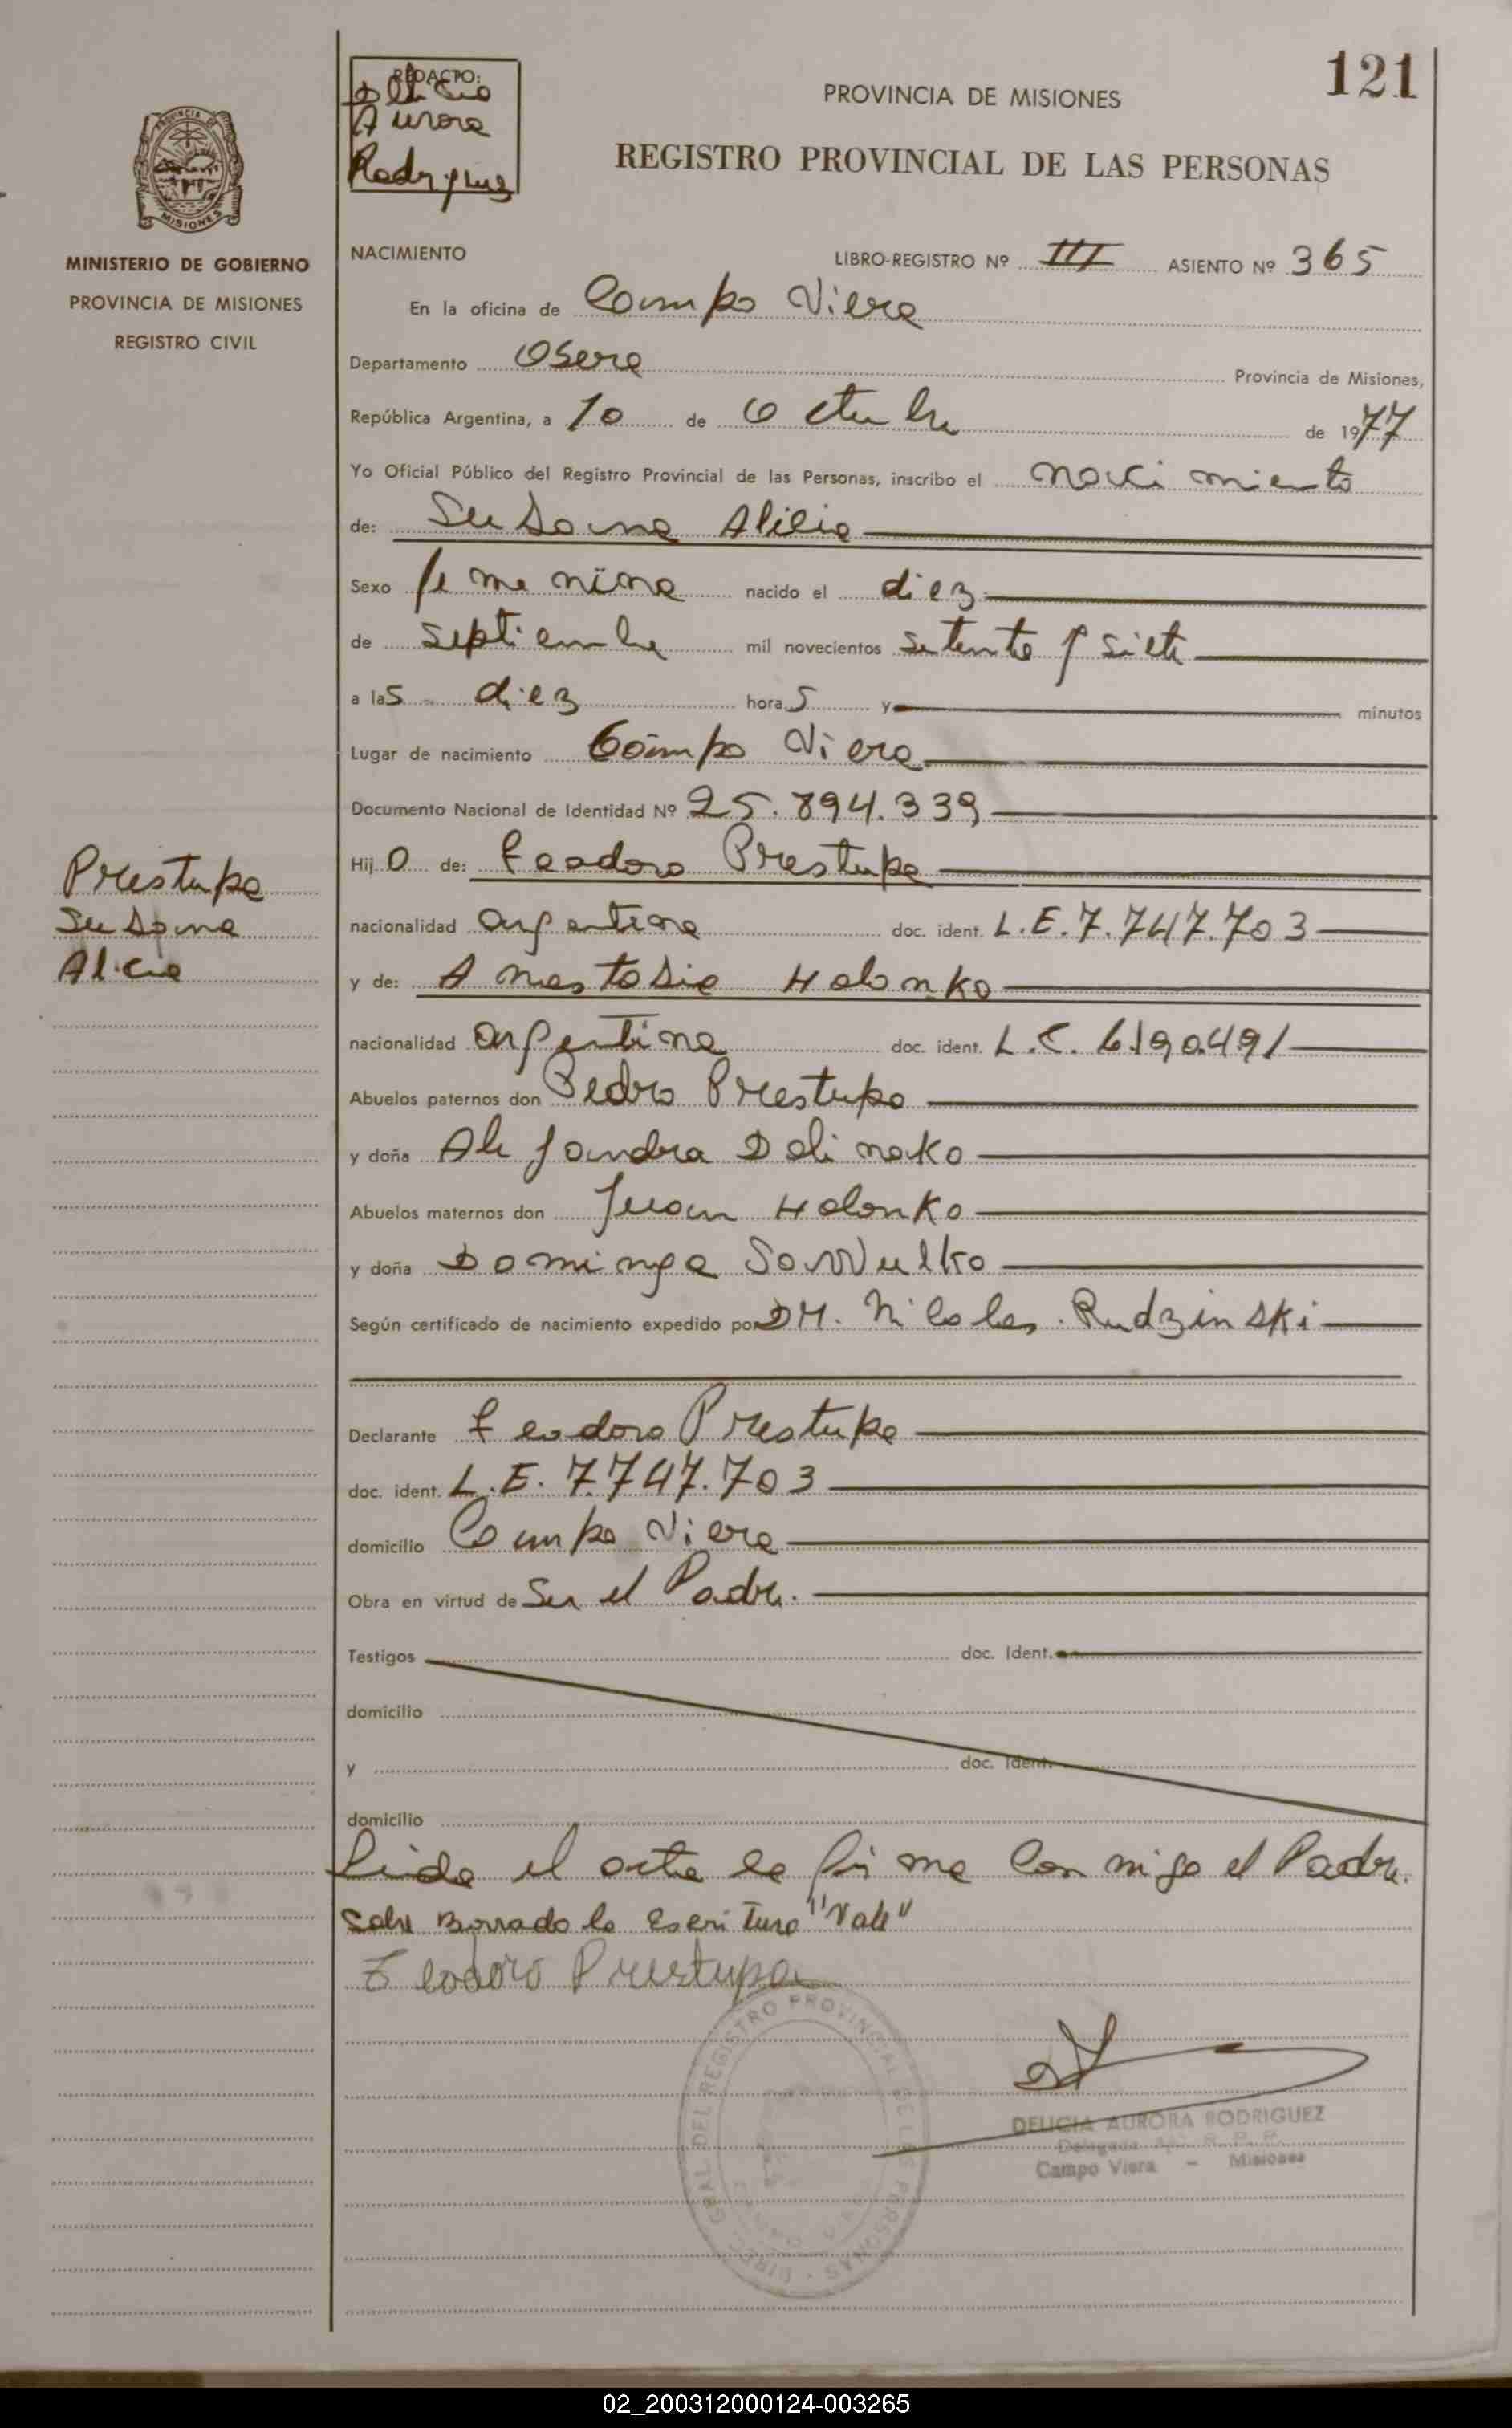 121
REDACTO:
Delicia
Aurora
Rodriguez
PROVINCIA DE MISIONES
REGISTRO PROVINCIAL DE LAS PERSONAS
PROVINCIA DE
MISIONES
MINISTERIO DE GOBIERNO
PROVINCIA DE MISIONES
REGISTRO CIVIL
NACIMIENTO LIBRO-REGISTRO Nº III ASIENTO Nº 365
En la oficina de Campo Viera
Departamento Obera Provincia de Misiones,
República Argentina, a 10 de Octubre de 1977
Yo Oficial Público del Registro Provincial de las Personas, inscribo el nacimiento
de: Susana Alicia
Sexo femenina nacido el diez
de septiembre mil novecientos setenta y siete
a las diez horas y minutos
Lugar de nacimiento Campo Viera
Documento Nacional de Identidad Nº 25.894.339
Hijo de: Teodoro Prestupa
nacionalidad argentina doc. ident. L.E.7.747.703
y de: Anastasia Holonko
nacionalidad argentina doc. ident. L.C. 6.190.491
Abuelos paternos don Pedro Prestupa
y doña Alejandra Dolinako
Abuelos maternos don Juan Holonko
y doña Dominga
Según certificado de nacimiento expedido por DM. Nicolas. Rudzinski
Declarante Teodoro Prestupa
doc. ident. L.E. 7.747.703
domicilio Campo Viera
Obra en virtud de Ser el Padre.
Testigos doc. Ident.
domicilio
y doc. Ident.
domicilio
Leida el acta la firma conmigo el Padre.
Sobre Borrado la escritura "Vale"
Teodoro Prestupa
DELICIA AURORA RODRIGUEZ
Delegada R. P. P.
Campo Viera - Misiones
Prestupa
Susana
Alicia
DIREC. GRAL DEL REGISTRO PROVINCIAL DE LAS PERSONAS
02_200312000124-003265